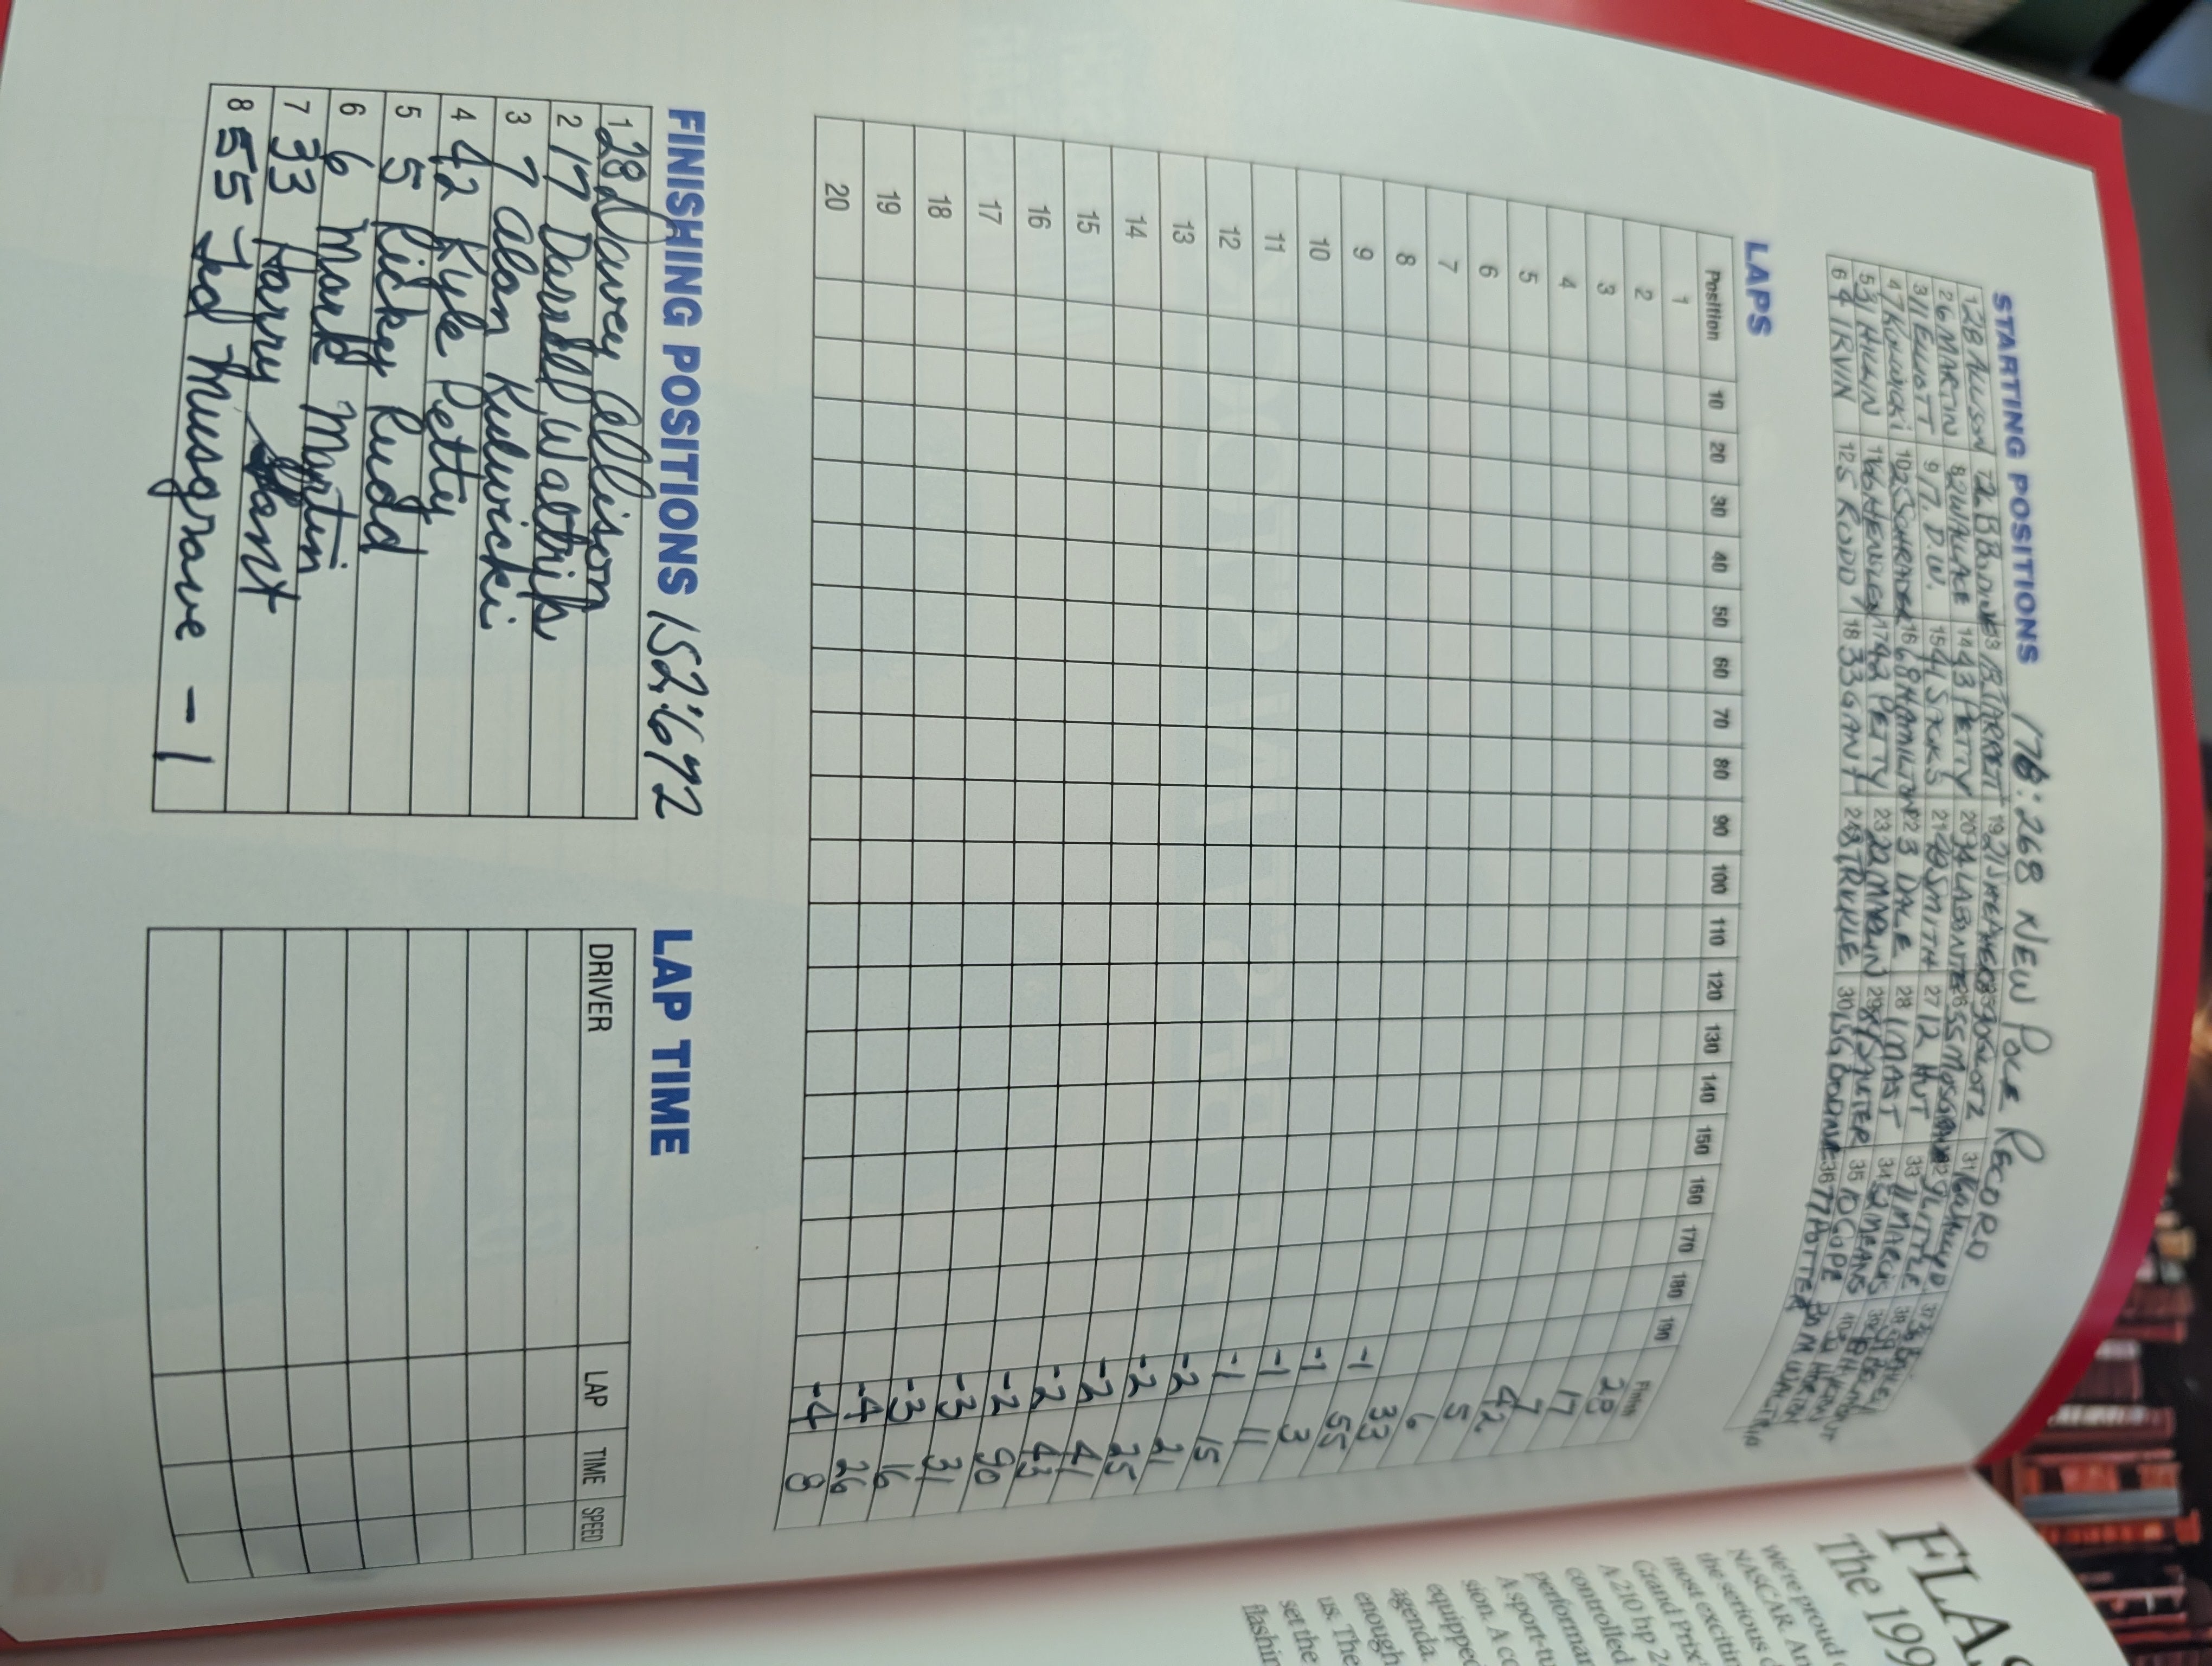 STARTING POSITIONS 176:268 NEW POLE RECORD
1 28 ALLISON 7 13 19 21 SHEPHERD 25
2 6 MARTIN 8 2 WALLACE 14 43 PETTY 20 94 LABONTE 26 55 MUSGRAVE 31
3 11 ELLIOTT 9 17 D.W. 15 41 SACKS 21 49 SMITH 27 12 HUT 32 9 LITTLE
4 7 KULWICKI 10 25 SCHRADER 16 68 HAMILTON 22 3 DALE 28 1 MAST 33 71 MARCIS
5 31 HILLIN 11 66 HENSLEY 17 42 PETTY 23 22 MARLIN 29 34 52 MEANS
6 4 IRVIN 12 5 RUDD 18 33 GANT 24 8 TRICKLE 30 15 G BODINE 35 10 COPE
36 77 POTTER
LAPS
Position 10 20 30 40 50 60 70 80 90 100 110 120 130 140 150 160 170 180 190 Finish
1 28
2 17
3 7
4 42
5 5
6 6
7 33
8 -1 55
9 -1 3
10 -1 11
11 -1 15
12 -2 21
13 -2 25
14 -2 41
15 -2 43
16 -2 90
17 -3 31
18 -3 16
19 -4 26
20 -4 8
FINISHING POSITIONS 152:672
1 28 Davey Allison
2 17 Darrell Waltrip
3 7 Alan Kulwicki
4 42 Kyle Petty
5 5 Rickey Rudd
6 6 Mark Martin
7 33 Harry Gant
8 55 Ted Musgrave -1
LAP TIME
DRIVER LAP TIME SPEED
FLAS
The 199
We're proud
NASCAR. An
the serious
most excitin
Grand Prix
A 210 hp 2
controlled
performan
A sport-tu
sion. A co
equipped
agenda.
enough
us. The
set the
flashin